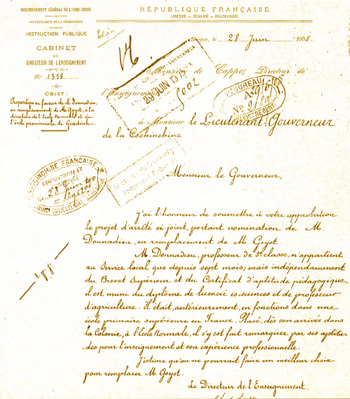 GOUVERNEMENT GÉNÉRAL DE L'INDO-CHINE
INSTRUCTION PUBLIQUE
CABINET
DU
DIRECTEUR DE L'ENSEIGNEMENT
No 1358
OBJET
Proposition en faveur de M. Donnadieu,
en remplacement de M. Goyot, à la
direction de l'Ecole Normale
RÉPUBLIQUE FRANÇAISE
LIBERTÉ — ÉGALITÉ — FRATERNITÉ
28 Juin
de Cappes, Directeur de
l'Enseignement
29 JUIN
5002
2e BUREAU
No
à Monsieur le Lieutenant Gouverneur
de la Cochinchine
COCHINCHINE FRANÇAISE
Monsieur le Gouverneur,
J'ai l'honneur de soumettre à votre approbation
le projet d'arrêté ci joint, portant nomination de M.
Donnadieu, en remplacement de M. Goyot.
M. Donnadieu, professeur de classe, n'appartient
au Service local que depuis sept mois; mais indépendamment
du Brevet Supérieur et du Certificat d'aptitude pédagogique,
il est muni du diplôme de licencié ès sciences et de professeur
d'agriculture. Il était antérieurement en fonctions dans une
école primaire supérieure en France. Placé, dès son arrivée dans
la Colonie, à l'Ecole Normale, il s'y est fait remarquer par ses aptitu-
des pour l'enseignement et son expérience professionnelle.
J'estime qu'on ne pourrait faire un meilleur choix
pour remplacer M. Goyot.
Le Directeur de l'Enseignement.